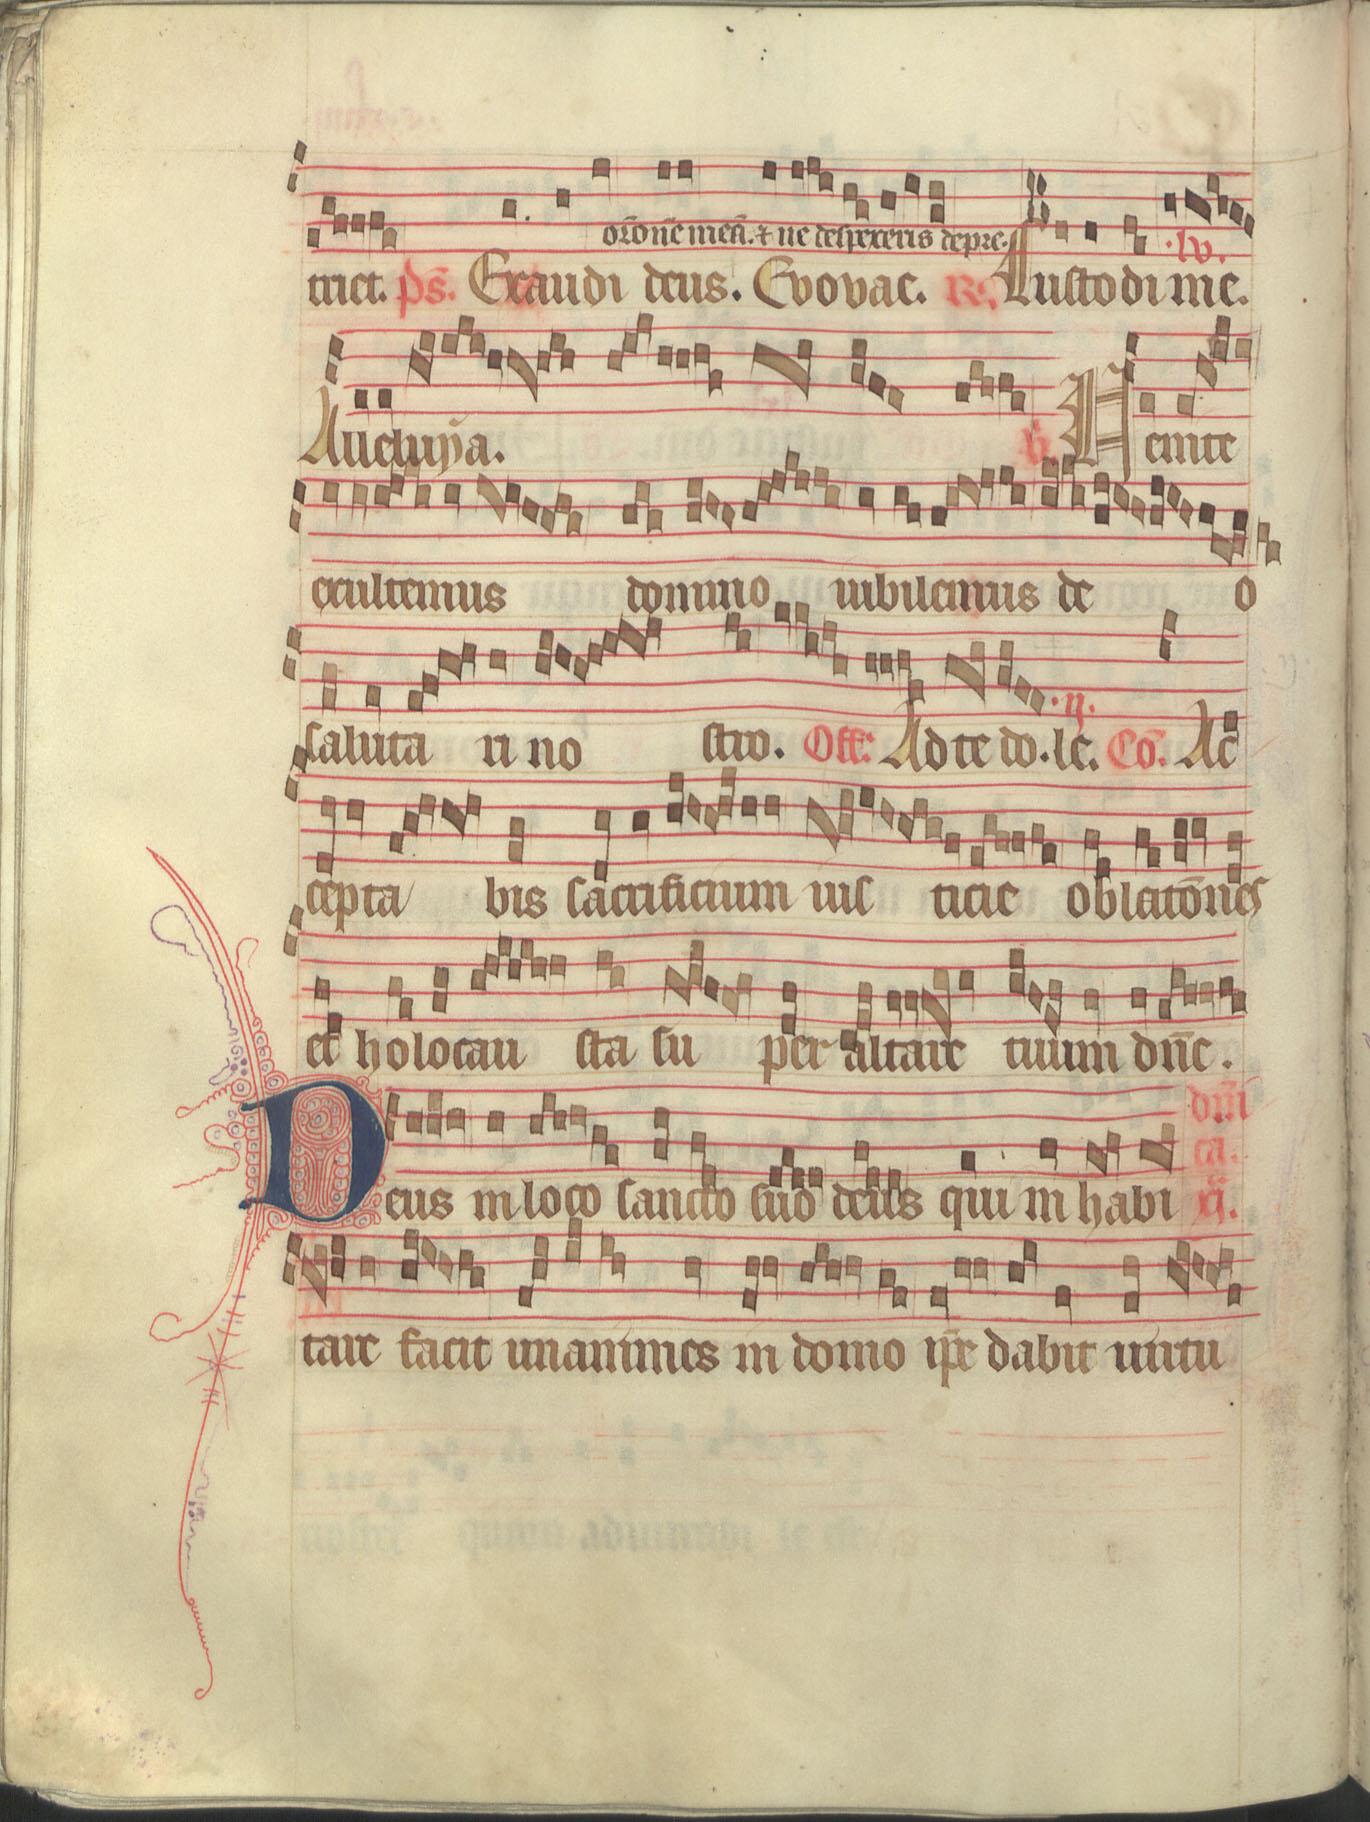 or̄one meā. ⁊ ne despexeris depre.
·lv.
triet. p̄s. Exaudi deus. Evovae. R̃. Custodi me.
Alleluya. ℣. Uenite
exultemus domino iubilemus de o
saluta ri no stro. Off. Ad te do. le. Cō. Ac
·ij.
cepta bis sacrificium ius ticie oblatōnes
et holocau sta su per altare tuum dn̄e.
dn̄i
ca.
Deus in loco sancto suo deus qui in habi xj.
tare facit unanimes in domo ip̄e dabit uirtu